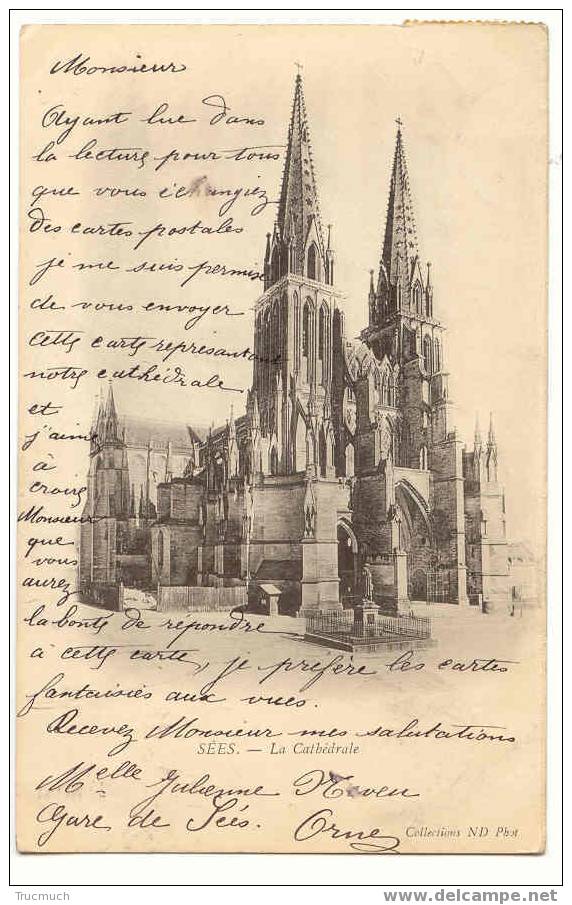 Monsieur
Ayant lue dans
la lecture pour tous
que vous échangiez
des cartes postales
je me suis permise
de vous envoyer
cette carte représantant
notre cathédrale
et
j'aime
à
croire
Monsieur
que
vous
aurez
la bonté de répondre
à cette carte, je préfère les cartes
fantaisies aux vues.
Recevez Monsieur mes salutations
SÉES. — La Cathédrale
Melle Julienne Neveu
Gare de Sées. Orne
Collections ND Phot
Trucmuch
www.delcampe.net